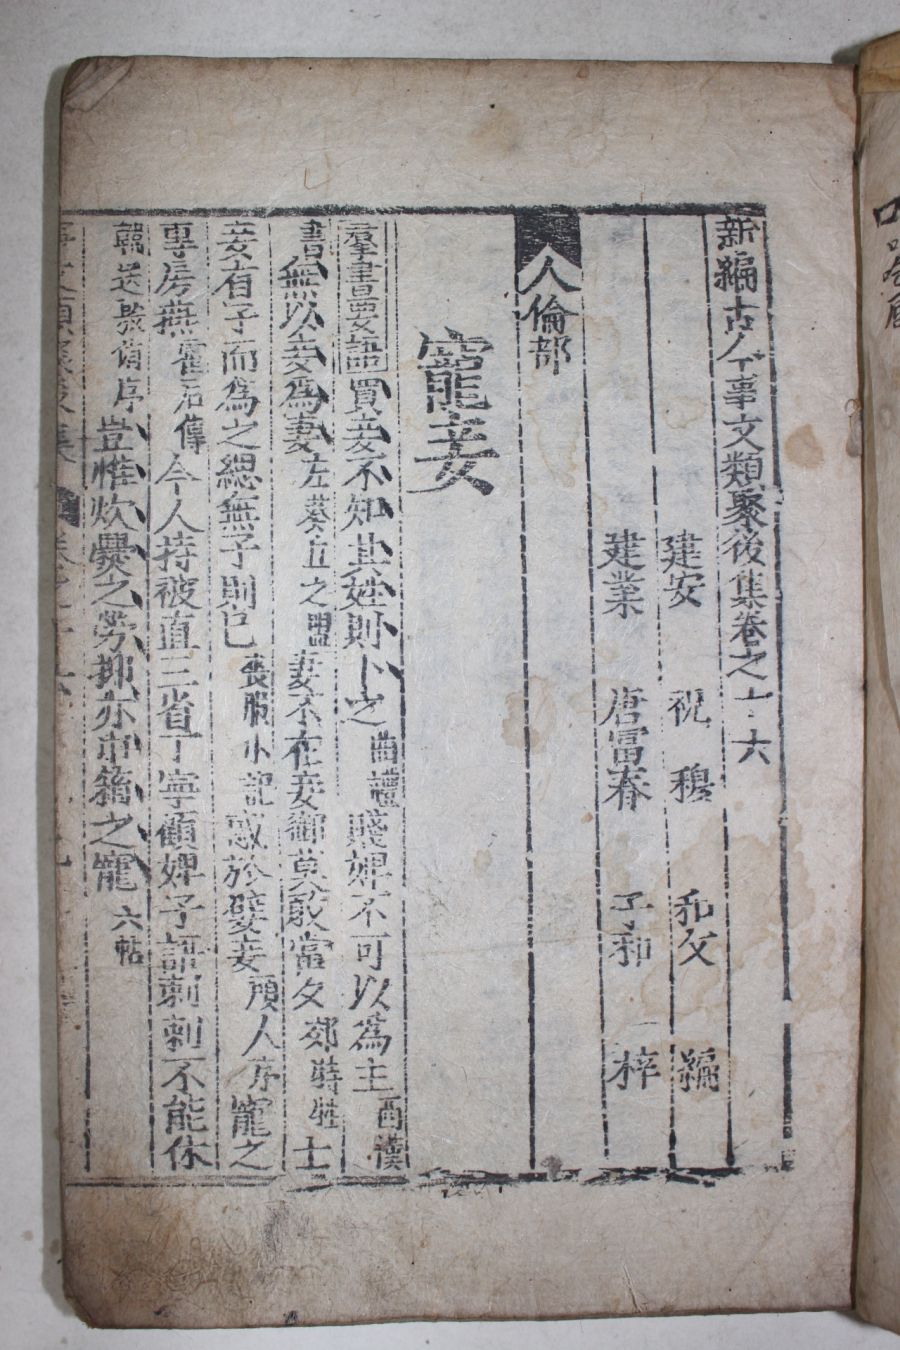 新編古今事文類聚後集卷之十六
建安　祝　穆　和父　編
建業　唐富春　子和　梓
人倫部
寵妾
羣書要語買妾不知其姓則卜之曲禮賤婢不可以為主西漢
書無以妾為妻左葵丘之盟妻不在妾御莫敢當夕郊特牲士
妾有子而為之緦無子則已喪服小記惑於嬖妾碩人序寵之
專房無霍后傳今人持被直三省丁寧顧婢子語剌剌不能休
韓送殷侑序豈惟炊爨之勞抑亦巾箱之寵六帖